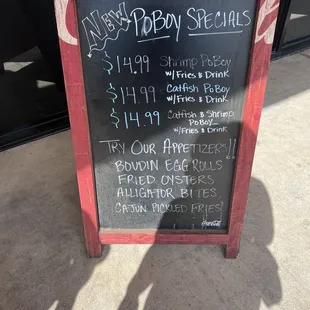 New PoBoy Specials
$14.99 Shrimp PoBoy
w/Fries & Drink
$14.99 Catfish PoBoy
w/Fries & Drink
$14.99 Catfish & Shrimp
PoBoy
w/Fries & Drink
Try Our Appetizers!!
Boudin Egg Rolls
Fried Oysters
Alligator Bites
Cajun Pickled Fries
Coca-Cola